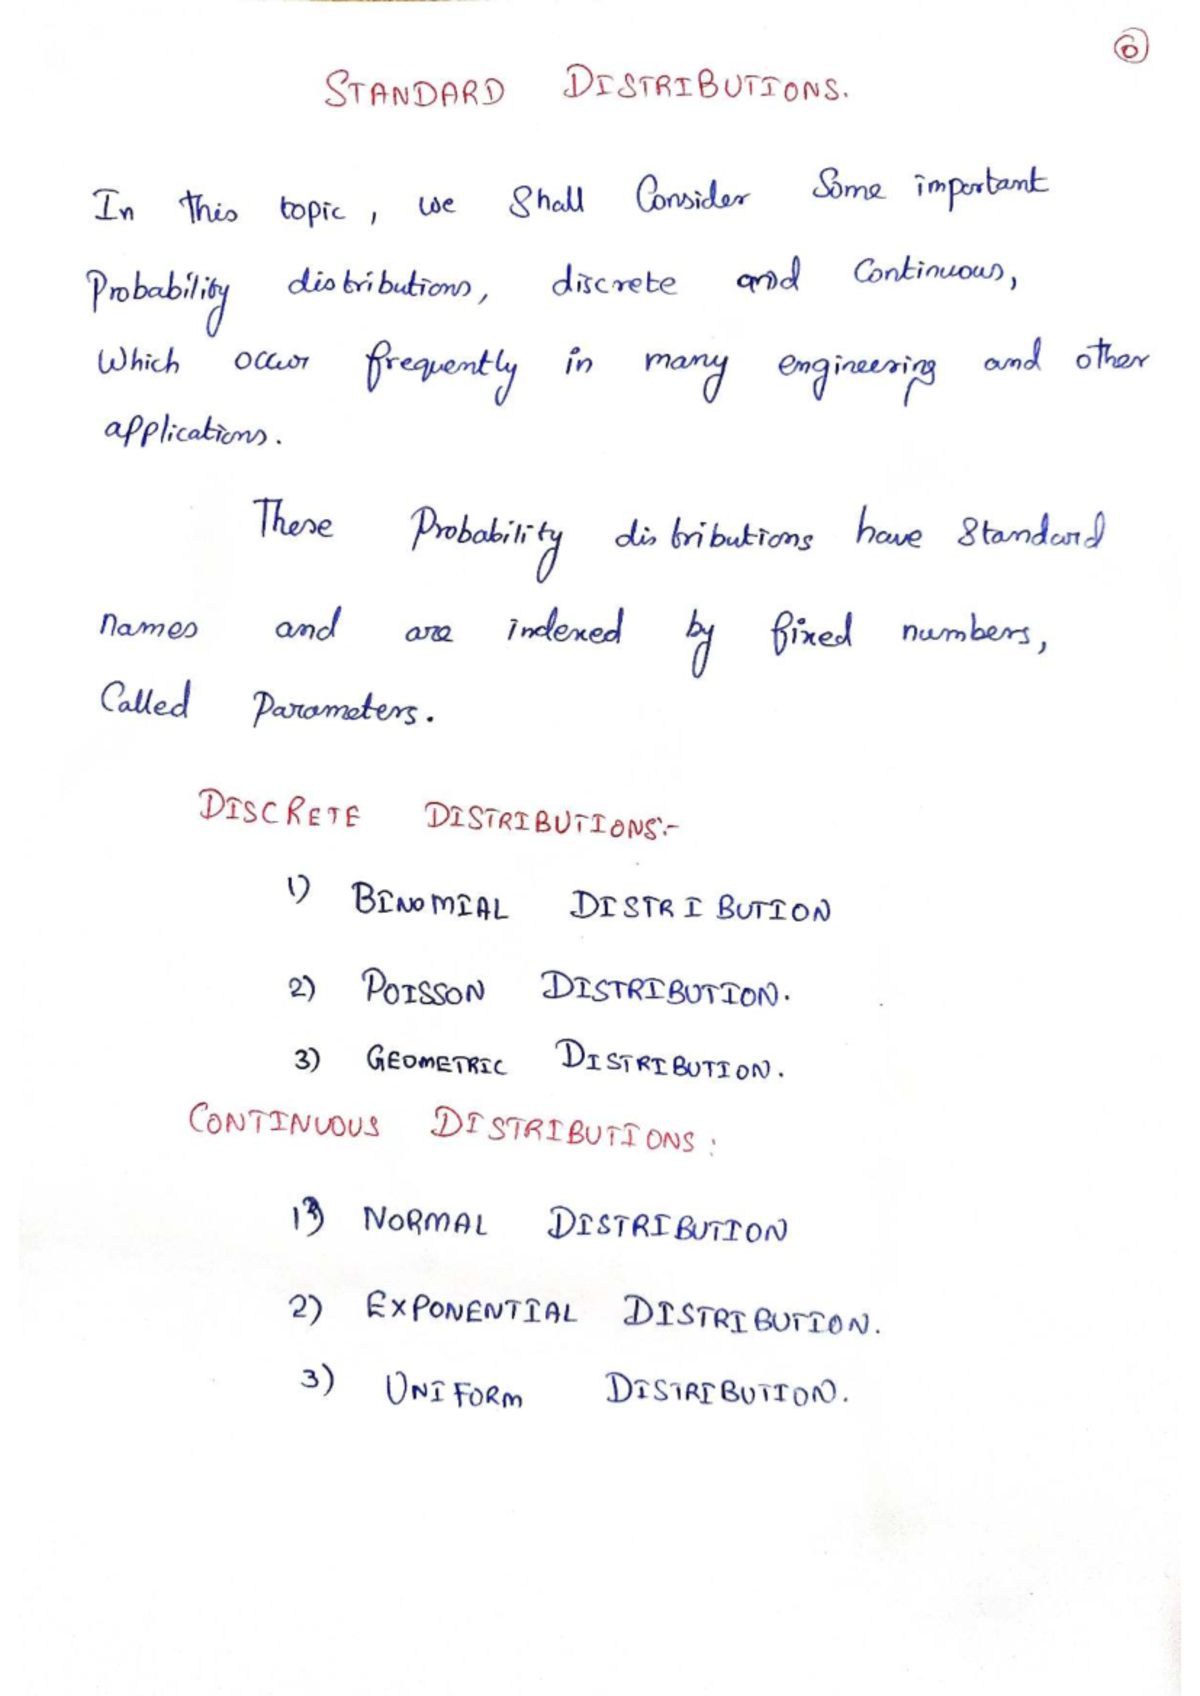 0
STANDARD DISTRIBUTIONS.
In this topic, we Shall Consider Some important
Probability distributions, discrete and Continuous,
Which occur frequently in many engineering and other
applications.
These Probability distributions have Standard
names and are indexed by fixed numbers,
Called Parameters.
DISCRETE DISTRIBUTIONS:-
1) BINOMIAL DISTRIBUTION
2) POISSON DISTRIBUTION.
3) GEOMETRIC DISTRIBUTION.
CONTINUOUS DISTRIBUTIONS:
1) NORMAL DISTRIBUTION
2) EXPONENTIAL DISTRIBUTION.
3) UNIFORM DISTRIBUTION.